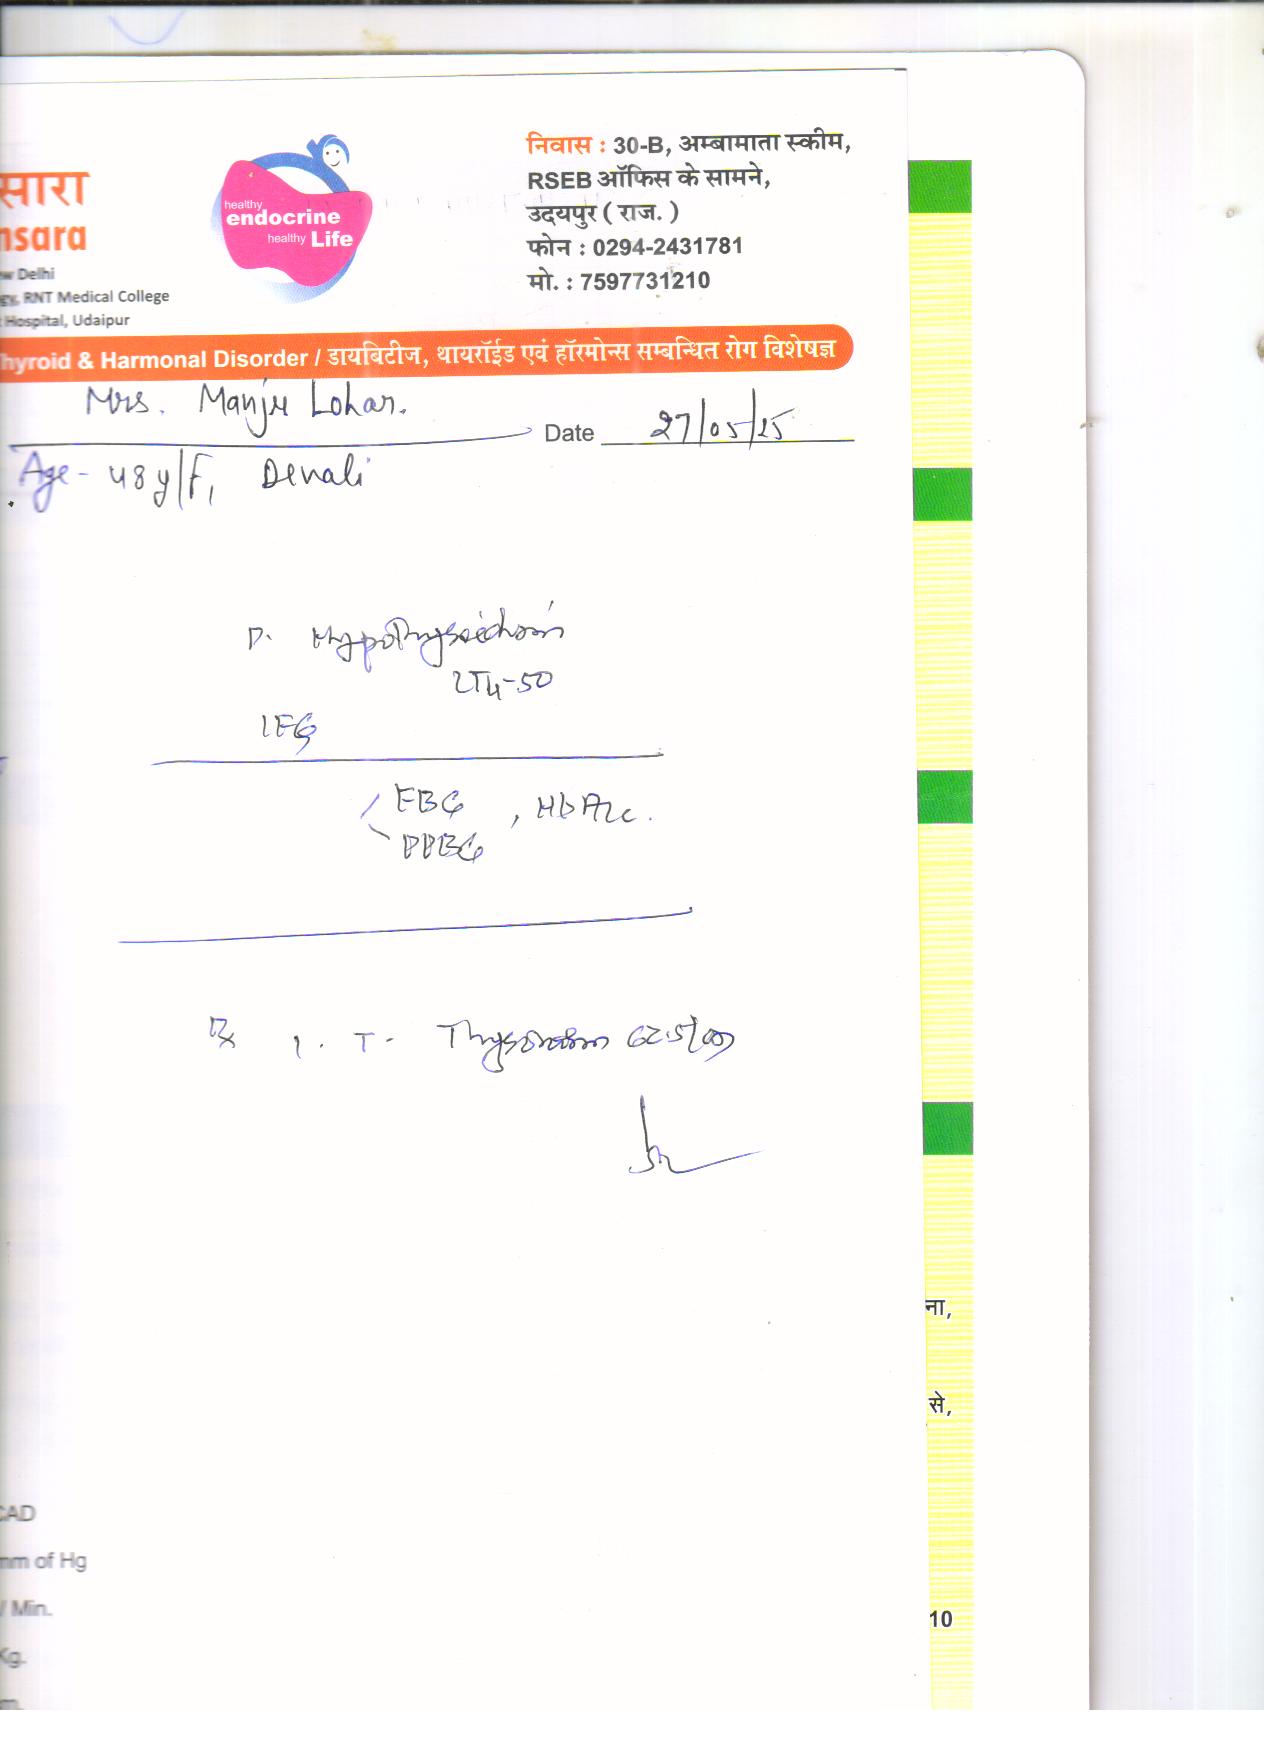 सारा
nsara
w Delhi
gy, RNT Medical College
Hospital, Udaipur
healthy
endocrine
healthy Life
निवास : 30-B, अम्बामाता स्कीम,
RSEB ऑफिस के सामने,
उदयपुर ( राज. )
फोन : 0294-2431781
मो. : 7597731210
hyroid & Harmonal Disorder / डायबिटीज, थायरॉईड एवं हॉरमोन्स सम्बन्धित रोग विशेषज्ञ
Mrs. Manju Lohar.
Date 27/05/25
Age - 48 y/F, Devali
P. Hypothyroidism
LT4-50
IFG
FBG
, HbA1c.
PPBG
Rx 1. T- 62.5/
ना,
से,
CAD
mm of Hg
/ Min.
Kg.
m.
10